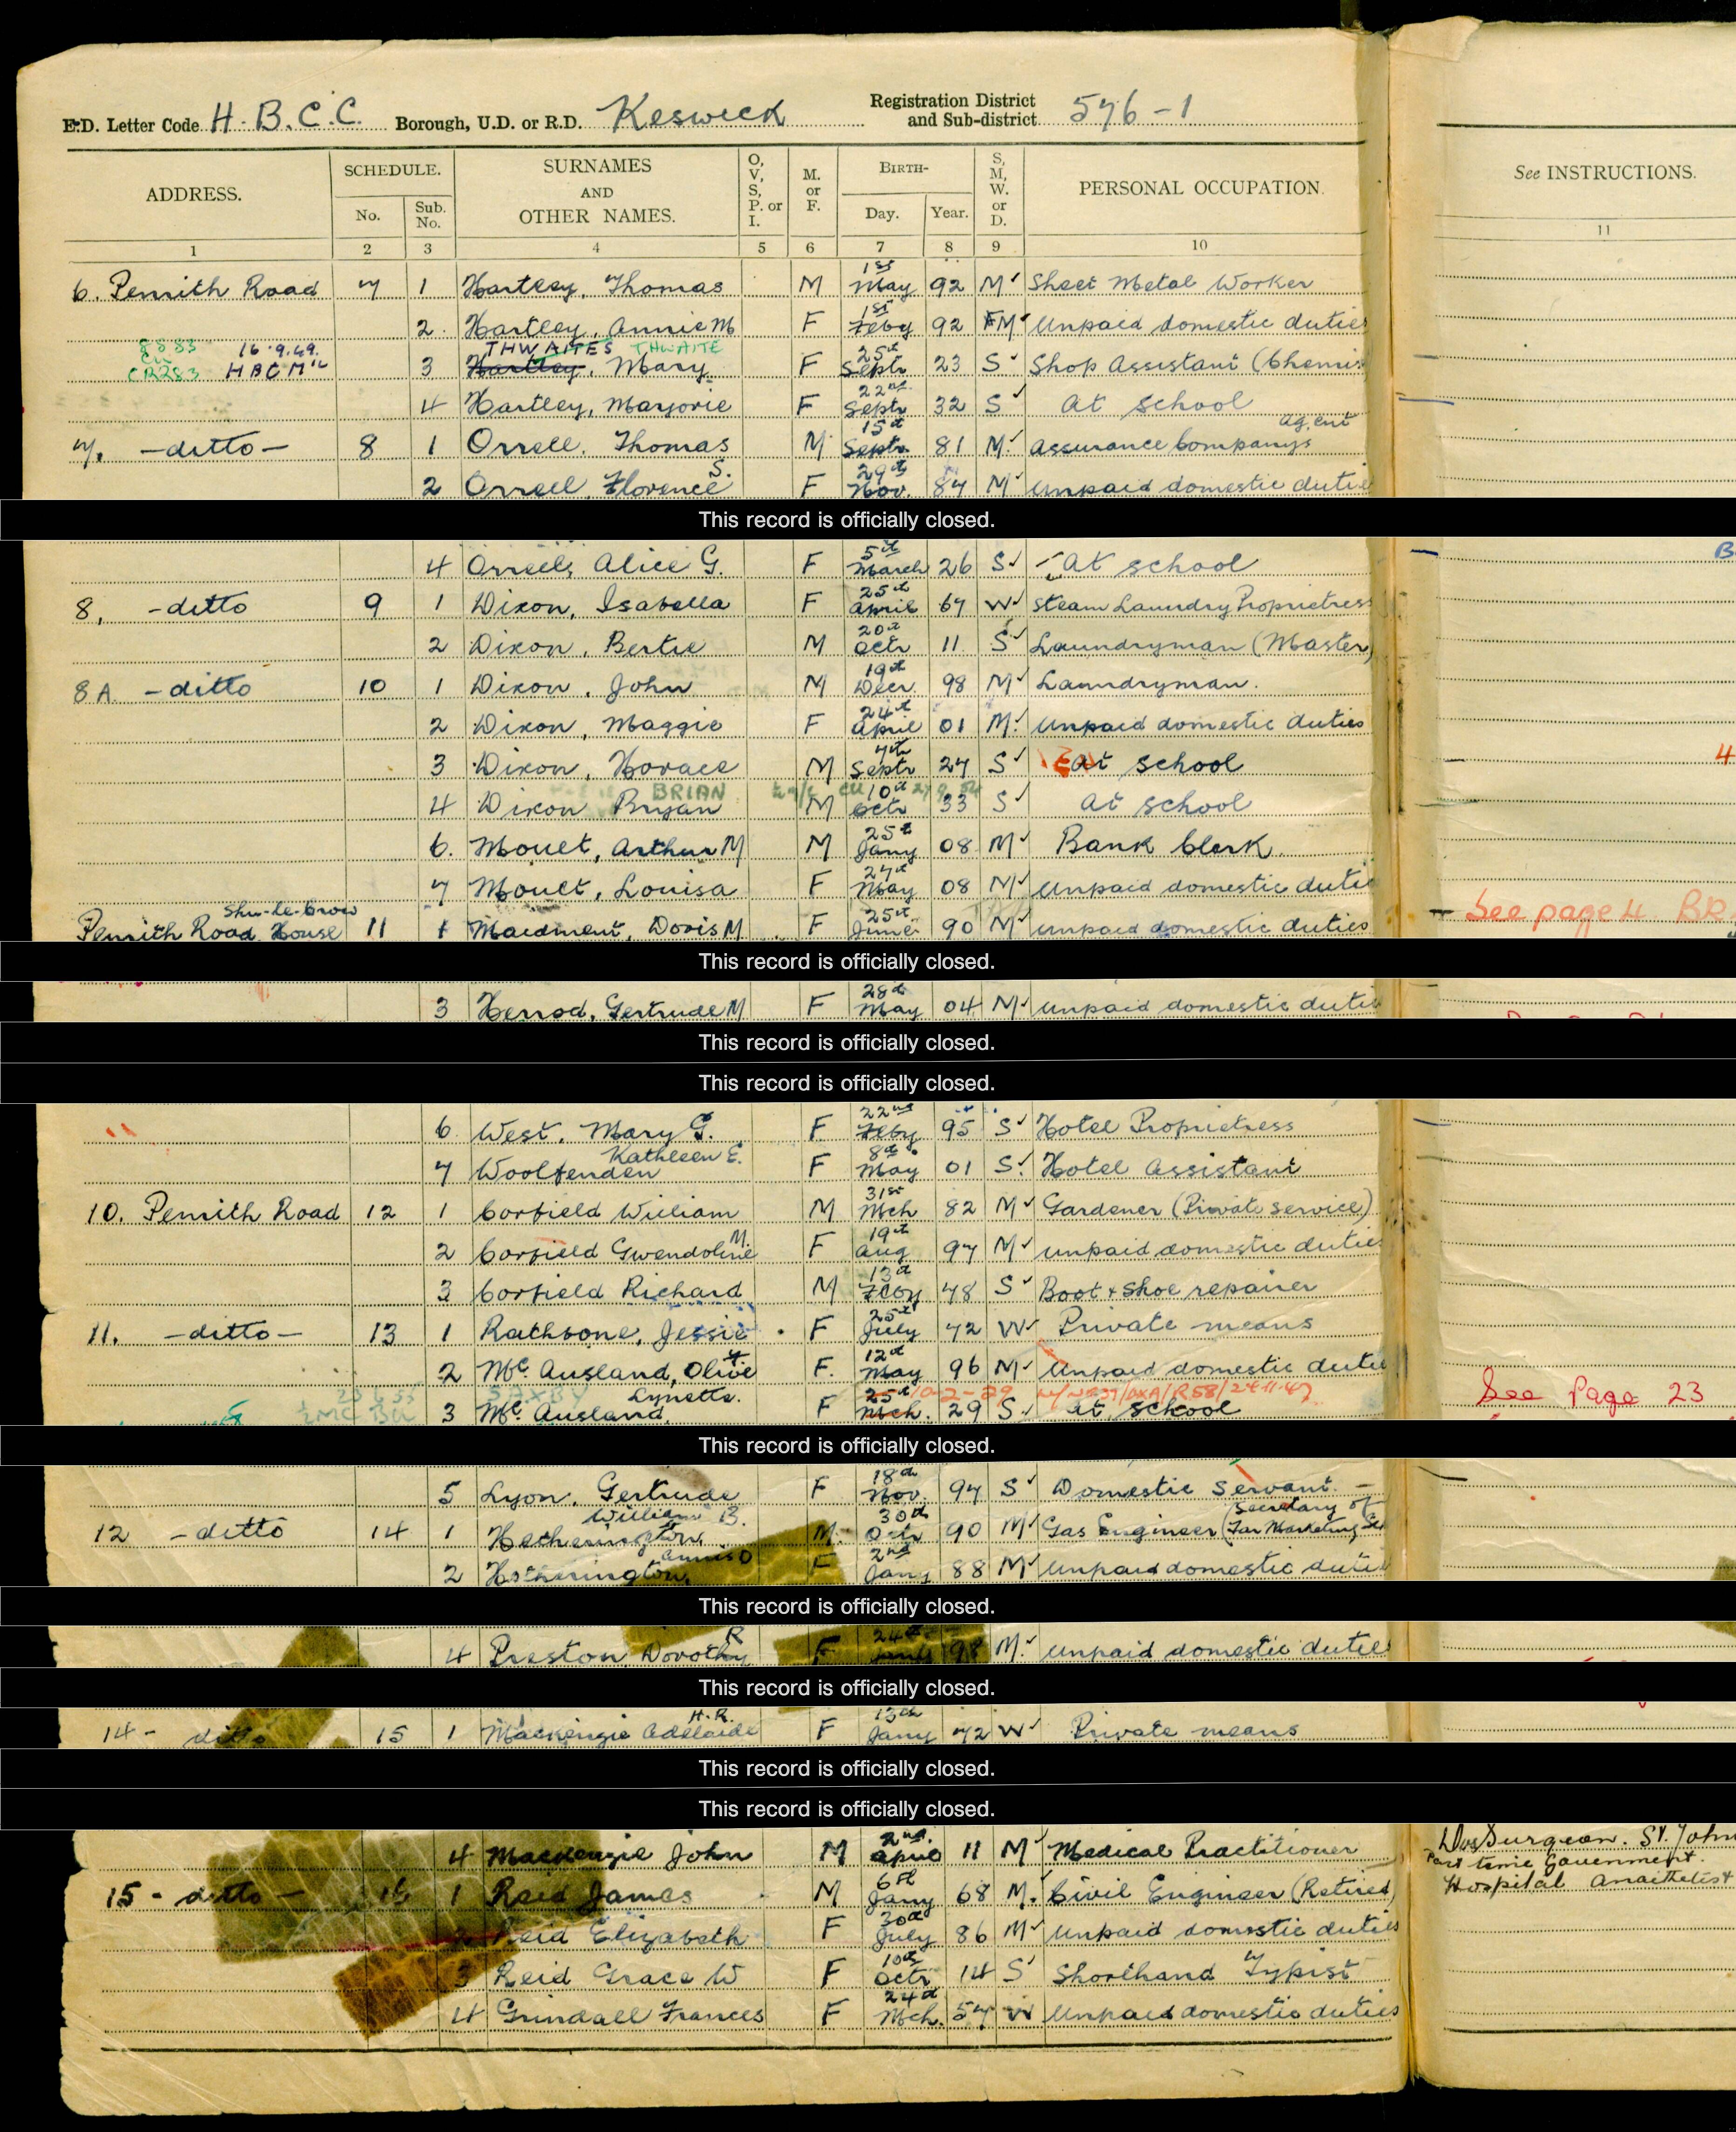 E.D. Letter Code H.B.C.C. Borough, U.D. or R.D. Keswick Registration District and Sub-district 576-1
ADDRESS. SCHEDULE. No. Sub. No. SURNAMES AND OTHER NAMES. O, V, S, P. or I. M. or F. BIRTH- Day. Year. S, M, W. or D. PERSONAL OCCUPATION. See INSTRUCTIONS.
1 2 3 4 5 6 7 8 9 10 11
6. Penrith Road 7 1 Hartley, Thomas M 1st May 92 M Sheet Metal Worker
2. Hartley, Annie M F 1st Feby 92 M Unpaid domestic duties
THWAITES THWAITE
16.9.49. CR283 HBCM 3 Hartley, Mary F 25th Septr 23 S Shop Assistant (Chemis
4 Hartley, Marjorie F 22nd Septr 32 S At school
7. -ditto- 8 1 Orrell, Thomas M 15th Septr 81 M Assurance Companys agent
2 Orrell, Florence S. F 29th Nov. 84 M Unpaid domestic dutie
This record is officially closed.
4 Orrell, Alice G. F 5th March 26 S At school
8, -ditto 9 1 Dixon, Isabella F 25th April 67 W Steam Laundry Proprietress
2 Dixon, Bertie M 20th Octr 11 S Laundryman (Master)
8A. -ditto 10 1 Dixon, John M 19th Decr. 98 M Laundryman.
2 Dixon, Maggie F 24th April 01 M Unpaid domestic duties
3 Dixon, Horace M 7th Septr 27 S At school 4
BRIAN
4 Dixon Bryan M 10th Octr 33 S At school
6. Mouet, Arthur M M 25th Jany 08 M Bank Clerk.
7 Mouet, Louisa F 27th May 08 M Unpaid domestic dutie
Shu-le-Crow
Penrith Road House 11 1 Maidment, Doris M F 25th June 90 M Unpaid domestic duties See page 4 BR
This record is officially closed.
3 Herrod, Gertrude M F 28th May 04 M Unpaid domestic dutie
This record is officially closed.
This record is officially closed.
6 West, Mary G. F 22nd Feby 95 S Hotel Proprietress
7 Woolfenden Kathleen E. F 8th May 01 S. Hotel Assistant
10. Penrith Road 12 1 Corfield William M 31st Mch 82 M Gardener (Private service)
2 Corfield Gwendoline M. F 19th Aug 97 M Unpaid domestic dutie
3 Corfield Richard M 13th Feby 48 S Boot + Shoe repairer
11. -ditto- 13 1 Rathbone, Jessie F 25th July 72 W Private means
2 Mc Ausland, Olive F. 12th May 96 M Unpaid domestic dutie
SAXBY 10-2-29
3 Mc Ausland, Lynette. F 25th Mch. 29 S At school See Page 23
This record is officially closed.
5 Lyon, Gertrude F 18th Nov. 94 S Domestic Servant.
12 -ditto 14 1 Hetherington, William B. M. 30th Octr 90 M Gas Engineer (Secretary of Tar Marketing
2 Hetherington, Annie F 2nd Jany 88 M Unpaid domestic dutie
This record is officially closed.
4 Preston Dorothy R F 24th 98 M. Unpaid domestic duties
This record is officially closed.
14 - ditto 15 1 Mackenzie Adelaide H.R. F 13th Jany 72 W Private means
This record is officially closed.
This record is officially closed.
4 Mackenzie John M 2nd April 11 M Medical Practitioner Surgeon. St. John Part time Government. Hospital Anaesthetist
15 - ditto - 16 1 Reid James M 6th Jany 68 M. Civil Engineer (Retired)
2 Reid Elizabeth F 30th July 86 M Unpaid domestic duties
3 Reid Grace W F 10th Octr 14 S Shorthand Typist
4 Grindall Frances F 24th Mch. 57 W Unpaid domestic duties